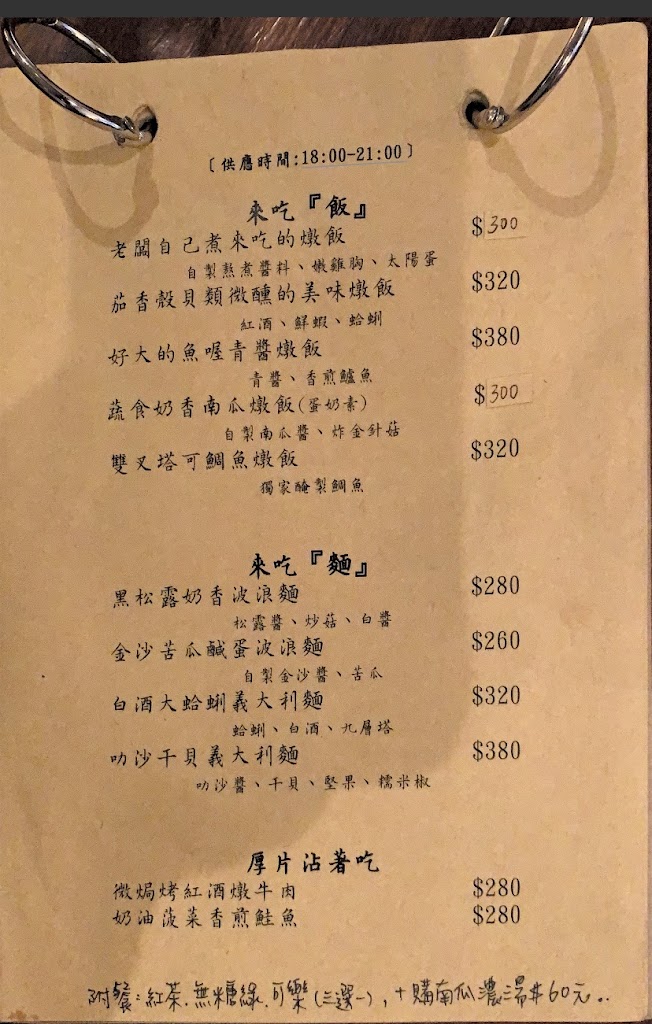 〔供應時間:18:00-21:00〕
來吃『飯』
老闆自己煮來吃的燉飯 $300
自製熬煮醬料、嫩雞胸、太陽蛋
茄香殼貝類微醺的美味燉飯 $320
紅酒、鮮蝦、蛤蜊
好大的魚喔青醬燉飯 $380
青醬、香煎鱸魚
蔬食奶香南瓜燉飯(蛋奶素) $300
自製南瓜醬、炸金針菇
雙叉塔可鯛魚燉飯 $320
獨家醃製鯛魚
來吃『麵』
黑松露奶香波浪麵 $280
松露醬、炒菇、白醬
金沙苦瓜鹹蛋波浪麵 $260
自製金沙醬、苦瓜
白酒大蛤蜊義大利麵 $320
蛤蜊、白酒、九層塔
叻沙干貝義大利麵 $380
叻沙醬、干貝、堅果、糯米椒
厚片沾著吃
微焗烤紅酒燉牛肉 $280
奶油菠菜香煎鮭魚 $280
附餐:紅茶.無糖綠.可樂(三選一),+購南瓜濃湯$60元..